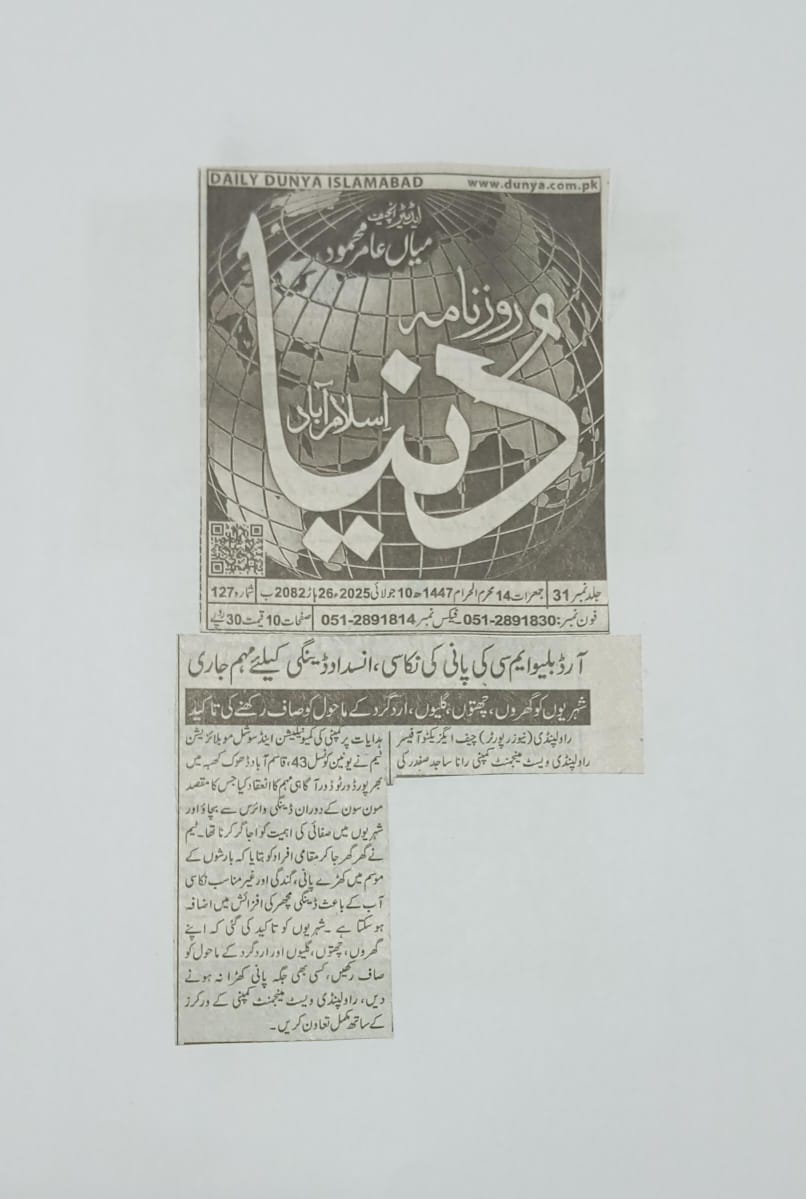 DAILY DUNYA ISLAMABAD www.dunya.com.pk
ایڈیٹر انچیف
میاں عامر محمود
روزنامہ
دُنیا
اسلام آباد
جلد نمبر 31 جمعرات 14 محرم الحرام 1447ھ 10 جولائی 2025ء 26 ہاڑ 2082 ب شمارہ 127
فون نمبر: 051-2891830 فیکس نمبر 051-2891814 صفحات 10 قیمت 30 روپے
آر ڈبلیو ایم سی کی پانی کی نکاسی، انسداد ڈینگی کیلئے مہم جاری
شہریوں کو گھروں، چھتوں، گلیوں، اردگرد کے ماحول کو صاف رکھنے کی تاکید
راولپنڈی (نیوز رپورٹر) چیف ایگزیکٹو آفیسر
راولپنڈی ویسٹ مینجمنٹ کمپنی رانا ساجد صفدر کی
ہدایات پر کمپنی کی کمیونیکیشن اینڈ سوشل موبلائزیشن
ٹیم نے یونین کونسل 43، قاسم آباد ڈھوک کھبہ میں
بھرپور ڈور ٹو ڈور آگاہی مہم کا انعقاد کیا جس کا مقصد
مون سون کے دوران ڈینگی وائرس سے بچاؤ اور
شہریوں میں صفائی کی اہمیت کو اجاگر کرنا تھا۔ ٹیم
نے گھر گھر جا کر مقامی افراد کو بتایا کہ بارشوں کے
موسم میں کھڑے پانی، گندگی اور غیر مناسب نکاسی
آب کے باعث ڈینگی مچھر کی افزائش میں اضافہ
ہو سکتا ہے۔ شہریوں کو تاکید کی گئی کہ اپنے
گھروں، چھتوں، گلیوں اور اردگرد کے ماحول کو
صاف رکھیں، کسی بھی جگہ پانی کھڑا نہ ہونے
دیں، راولپنڈی ویسٹ مینجمنٹ کمپنی کے ورکرز
کے ساتھ مکمل تعاون کریں۔